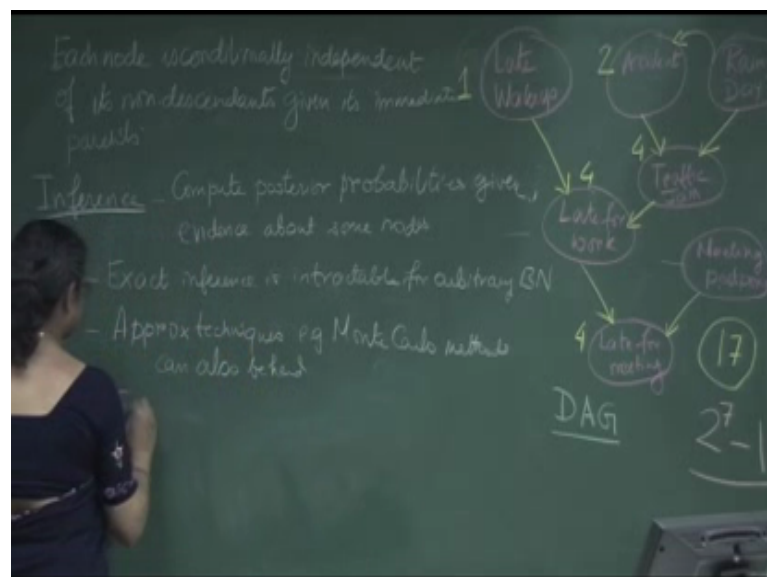 Each node is conditionally independent
of its nondescendants given its immediate
parents.
Inference - Compute posterior probabilities given
evidence about some nodes
- Exact inference is intractable for arbitrary BN
- Approx techniques eg Monte Carlo methods
can also be hard
1 Late
Wakeup
2 Accident
Rainy
Day
4 Traffic
Jam
4
Late for
work
Meeting
postpon
4 Late for
meeting
17
DAG
2^7 - 1